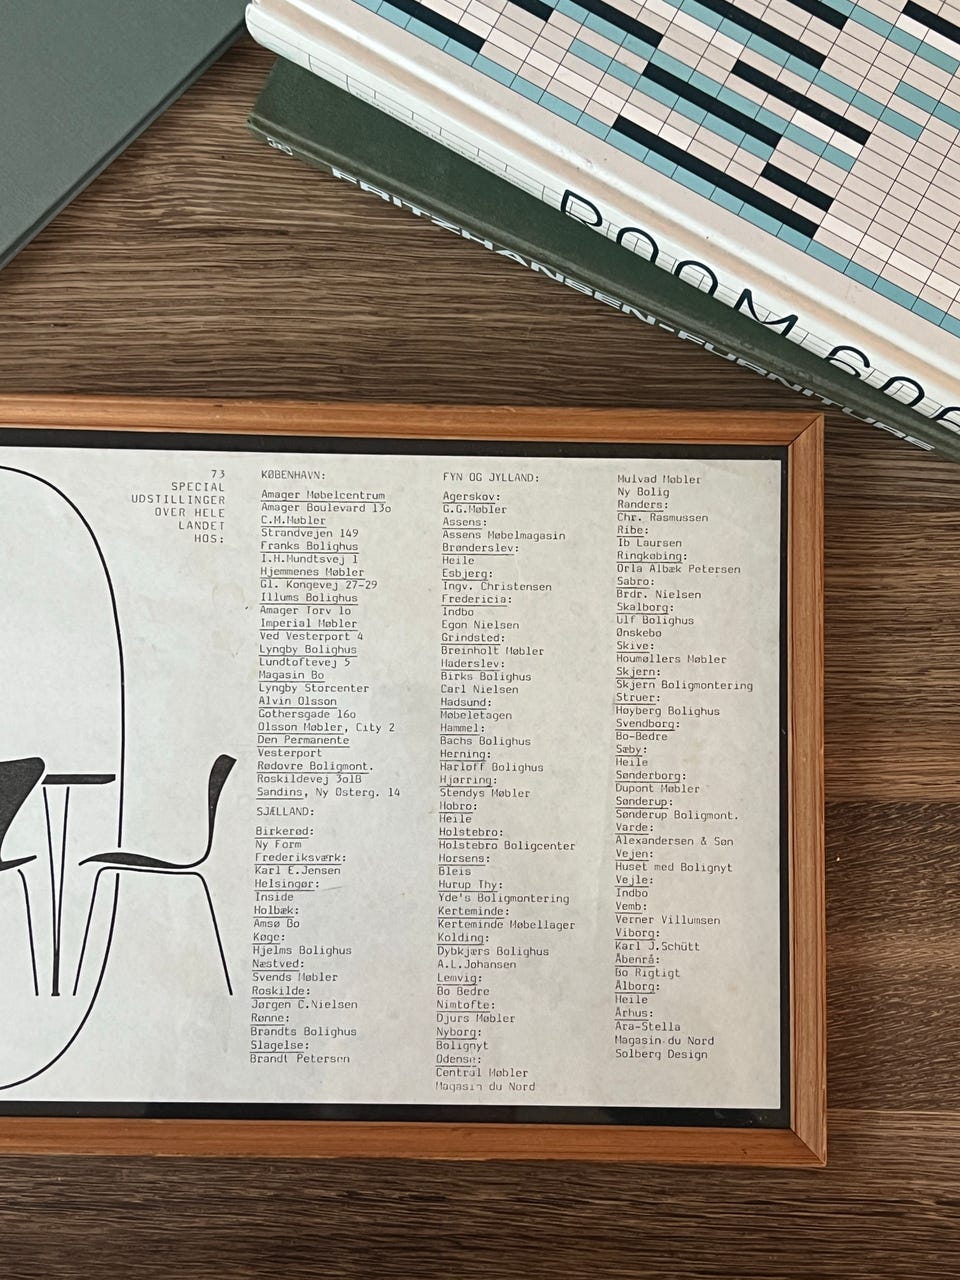 ROOM 606
FRITZ HANSEN FURNITURE
73
SPECIAL
UDSTILLINGER
OVER HELE
LANDET
HOS:
KØBENHAVN:
Amager Møbelcentrum
Amager Boulevard 13o
C.M.Møbler
Strandvejen 149
Franks Bolighus
I.H.Mundtsvej 1
Hjemmenes Møbler
Gl. Kongevej 27-29
Illums Bolighus
Amager Torv 1o
Imperial Møbler
Ved Vesterport 4
Lyngby Bolighus
Lundtoftevej 5
Magasin Bo
Lyngby Storcenter
Alvin Olsson
Gothersgade 16o
Olsson Møbler, City 2
Den Permanente
Vesterport
Rødovre Boligmont.
Roskildevej 3o1B
Sandins, Ny Østerg. 14
SJÆLLAND:
Birkerød:
Ny Form
Frederiksværk:
Karl E.Jensen
Helsingør:
Inside
Holbæk:
Amsø Bo
Køge:
Hjelms Bolighus
Næstved:
Svends Møbler
Roskilde:
Jørgen C.Nielsen
Rønne:
Brandts Bolighus
Slagelse:
Brandt Petersen
FYN OG JYLLAND:
Agerskov:
G.G.Møbler
Assens:
Assens Møbelmagasin
Brønderslev:
Heile
Esbjerg:
Ingv. Christensen
Fredericia:
Indbo
Egon Nielsen
Grindsted:
Breinholt Møbler
Haderslev:
Birks Bolighus
Carl Nielsen
Hadsund:
Møbeletagen
Hammel:
Bachs Bolighus
Herning:
Harloff Bolighus
Hjørring:
Stendys Møbler
Hobro:
Heile
Holstebro:
Holstebro Boligcenter
Horsens:
Bleis
Hurup Thy:
Yde's Boligmontering
Kerteminde:
Kerteminde Møbellager
Kolding:
Dybkjærs Bolighus
A.L.Johansen
Lemvig:
Bo Bedre
Nimtofte:
Djurs Møbler
Nyborg:
Bolignyt
Odense:
Central Møbler
Magasin du Nord
Mulvad Møbler
Ny Bolig
Randers:
Chr. Rasmussen
Ribe:
Ib Laursen
Ringkøbing:
Orla Albæk Petersen
Sabro:
Brdr. Nielsen
Skalborg:
Ulf Bolighus
Ønskebo
Skive:
Houmøllers Møbler
Skjern:
Skjern Boligmontering
Struer:
Høyberg Bolighus
Svendborg:
Bo-Bedre
Sæby:
Heile
Sønderborg:
Dupont Møbler
Sønderup:
Sønderup Boligmont.
Varde:
Alexandersen & Søn
Vejen:
Huset med Bolignyt
Vejle:
Indbo
Vemb:
Verner Villumsen
Viborg:
Karl J.Schütt
Åbenrå:
Bo Rigtigt
Ålborg:
Heile
Århus:
Ara-Stella
Magasin du Nord
Solberg Design